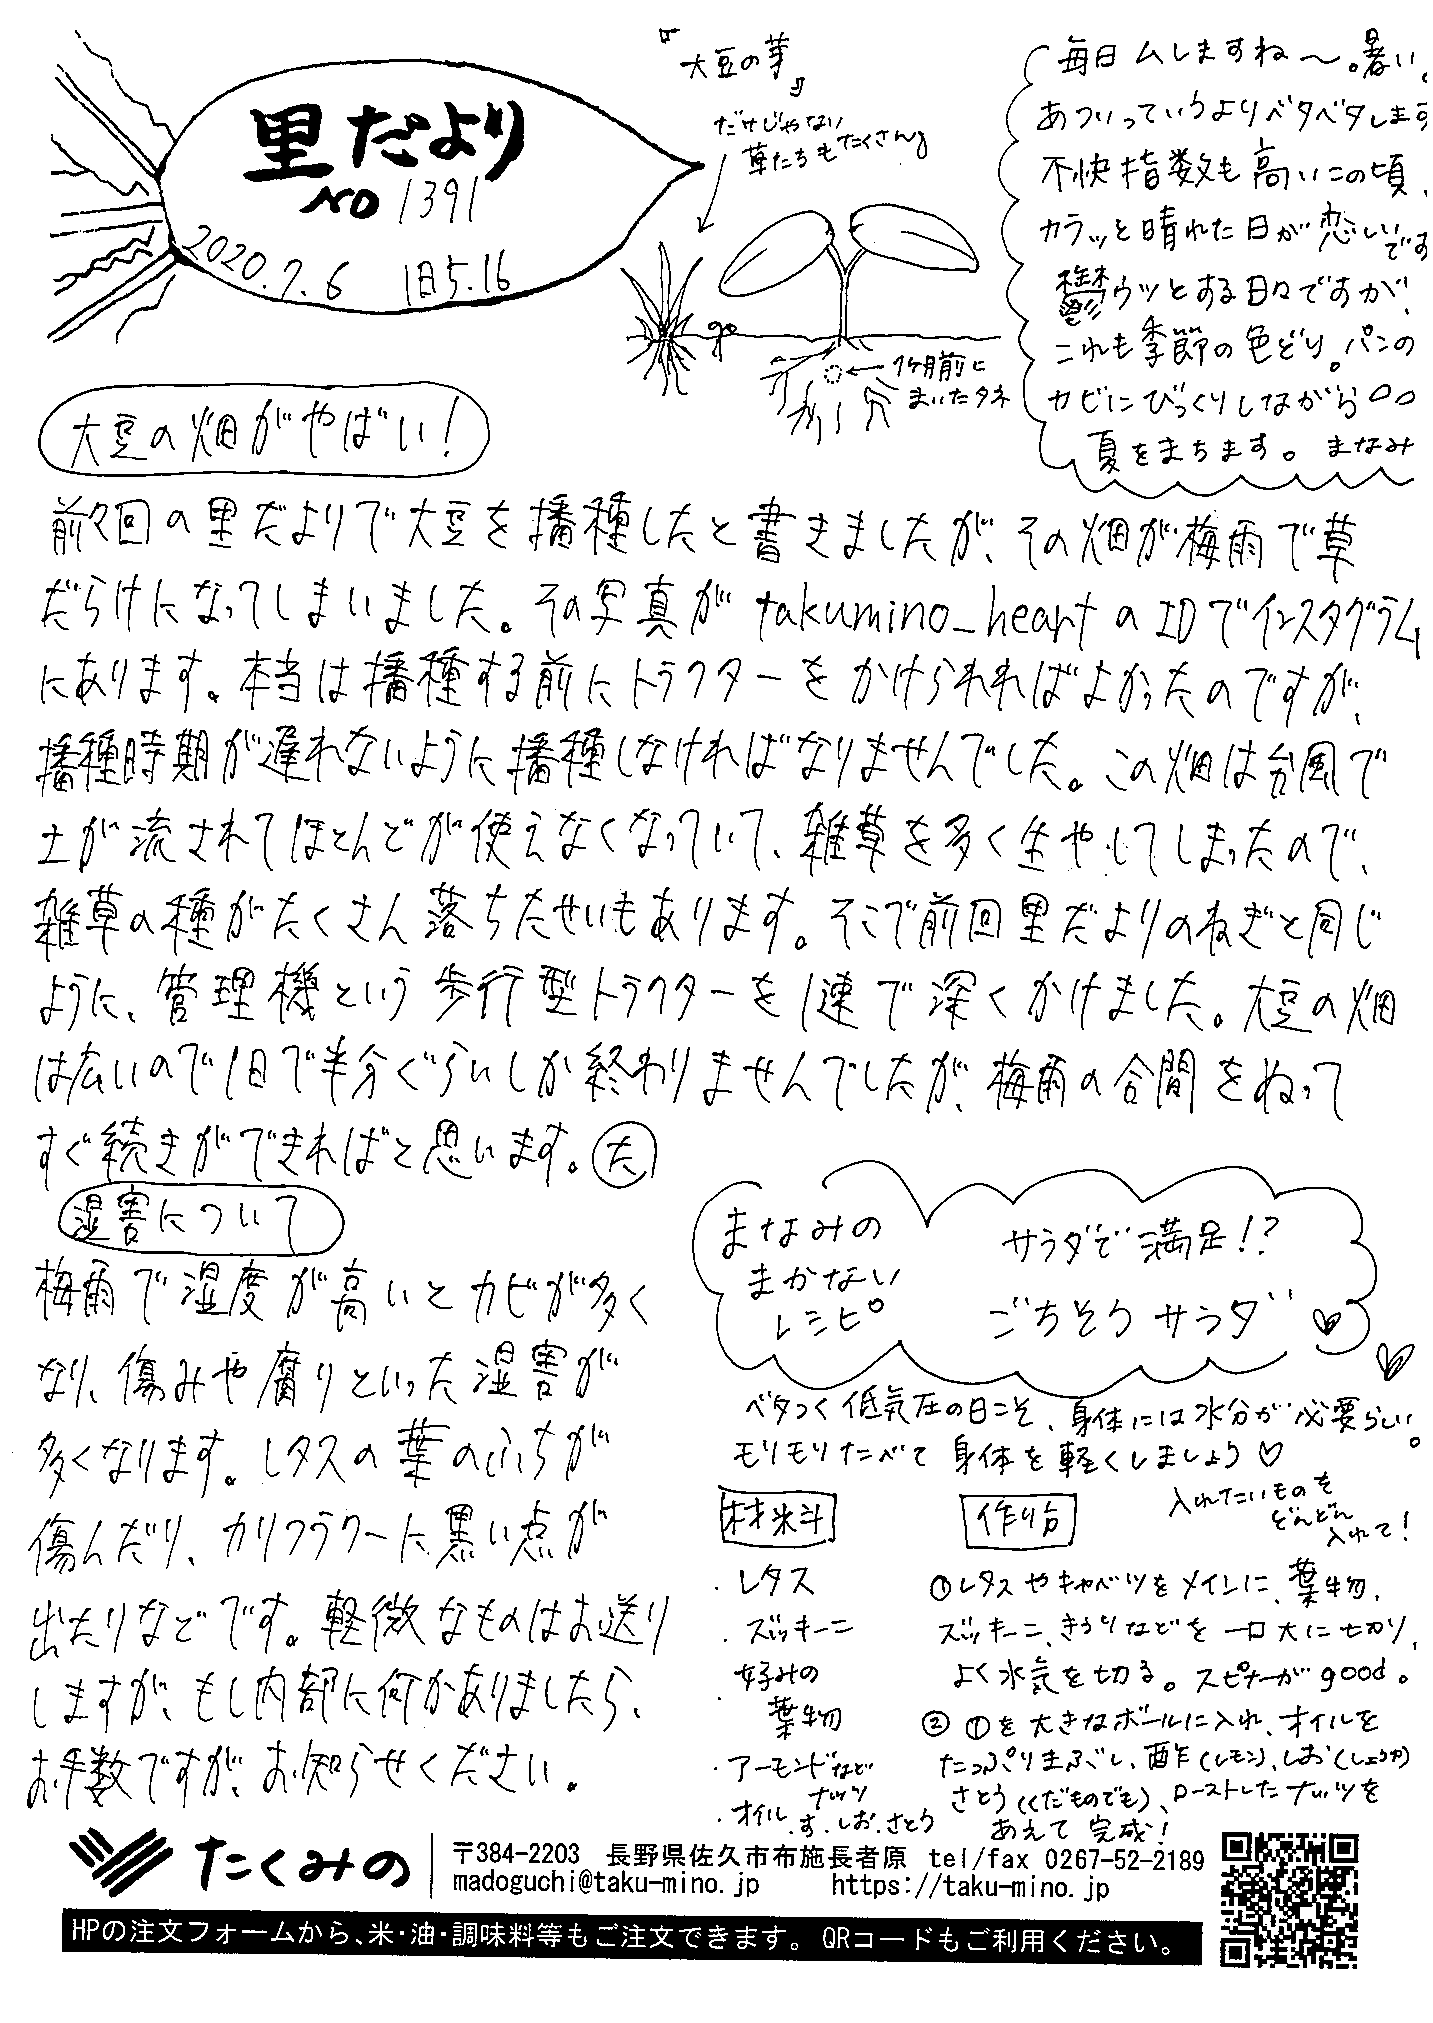 里だより
NO 1391
2020.7.6 旧5.16
『大豆の芽』
だけじゃない
草たちもたくさん
1ヶ月前に
まいたタネ
毎日ムしますね〜。暑い。
あついっていうよりベタベタします
不快指数も高いこの頃、
カラッと晴れた日が恋しいです
鬱ウッとする日々ですが、
これも季節の色どり。パンの
カビにびっくりしながら○○
夏をまちます。まなみ
大豆の畑がやばい!
前々回の里だよりで大豆を播種したと書きましたが、その畑が梅雨で草
だらけになってしまいました。その写真が takumino_heartのIDでインスタグラム
にあります。本当は播種する前にトラクターをかけられればよかったのですが、
播種時期が遅れないように播種しなければなりませんでした。この畑は台風で
土が流されてほとんどが使えなくなっていて、雑草を多く生やしてしまったので、
雑草の種がたくさん落ちたせいもあります。そこで前回里だよりのねぎと同じ
ように、管理機という歩行型トラクターを1速で深くかけました。大豆の畑
は広いので1日で半分ぐらいしか終わりませんでしたが、梅雨の合間をぬって
すぐ続きができればと思います。た
湿害について
梅雨で湿度が高いとカビが多く
なり、傷みや腐りといった湿害が
多くなります。レタスの葉のふちが
傷んだり、カリフラワーに黒い点が
出たりなどです。軽微なものはお送り
しますが、もし内部に何かありましたら、
お手数ですが、お知らせください。
まなみの
まかない
レシピ
サラダで満足!?
ごちそうサラダ
ベタつく低気圧の日こそ、身体には水分が必要らしい。
モリモリたべて身体を軽くしましょう♡
材料
・レタス
・ズッキーニ
・好みの
葉物
・アーモンドなど
ナッツ
・オイル、す、しお、さとう
作り方
入れたいものを
どんどん
入れて!
①レタスやキャベツをメインに、葉物、
ズッキーニ、きうりなどを一口大に切り、
よく水気を切る。スピナーがgood。
② ①を大きなボールに入れ、オイルを
たっぷりまぶし、酢(レモン)、しお(しょうゆ)
さとう(くだものでも)、ローストしたナッツを
あえて完成!
たくみの
〒384-2203 長野県佐久市布施長者原 tel/fax 0267-52-2189
madoguchi@taku-mino.jp https://taku-mino.jp
HPの注文フォームから、米・油・調味料等もご注文できます。QRコードもご利用ください。